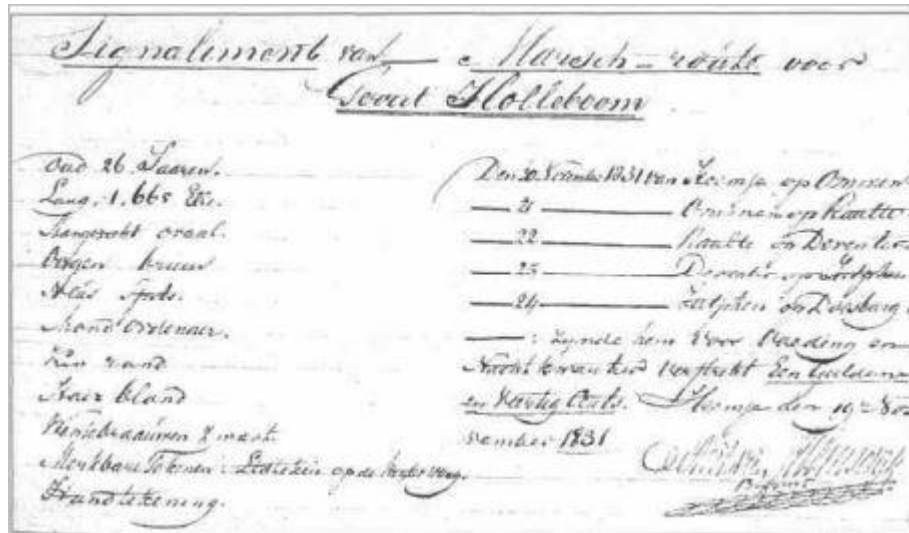 Signalement van
Govert Holleboom
Oud 26 Jaaren.
Lang. 1.665 Elle.
Aangezicht ovaal.
Oogen bruin
Neus spits.
Mond ordenair.
Kin rond
Hair bland
Wenkbraauwen zwart.
Merkbare Tekenen: Lidteken op de wang.
Handtekening.
Marsch-route voor
Den 20 November 1831 van op Ommen
21 Ommen op Raalte
22 Raalte op Deventer
23 Deventer op Zutphen
24 Zutphen op Doesburg
: zynde hem voor Voeding en
Nacht kwartier verstrekt Een Gulden
en Veertig Cents. den 19e No
vember 1831